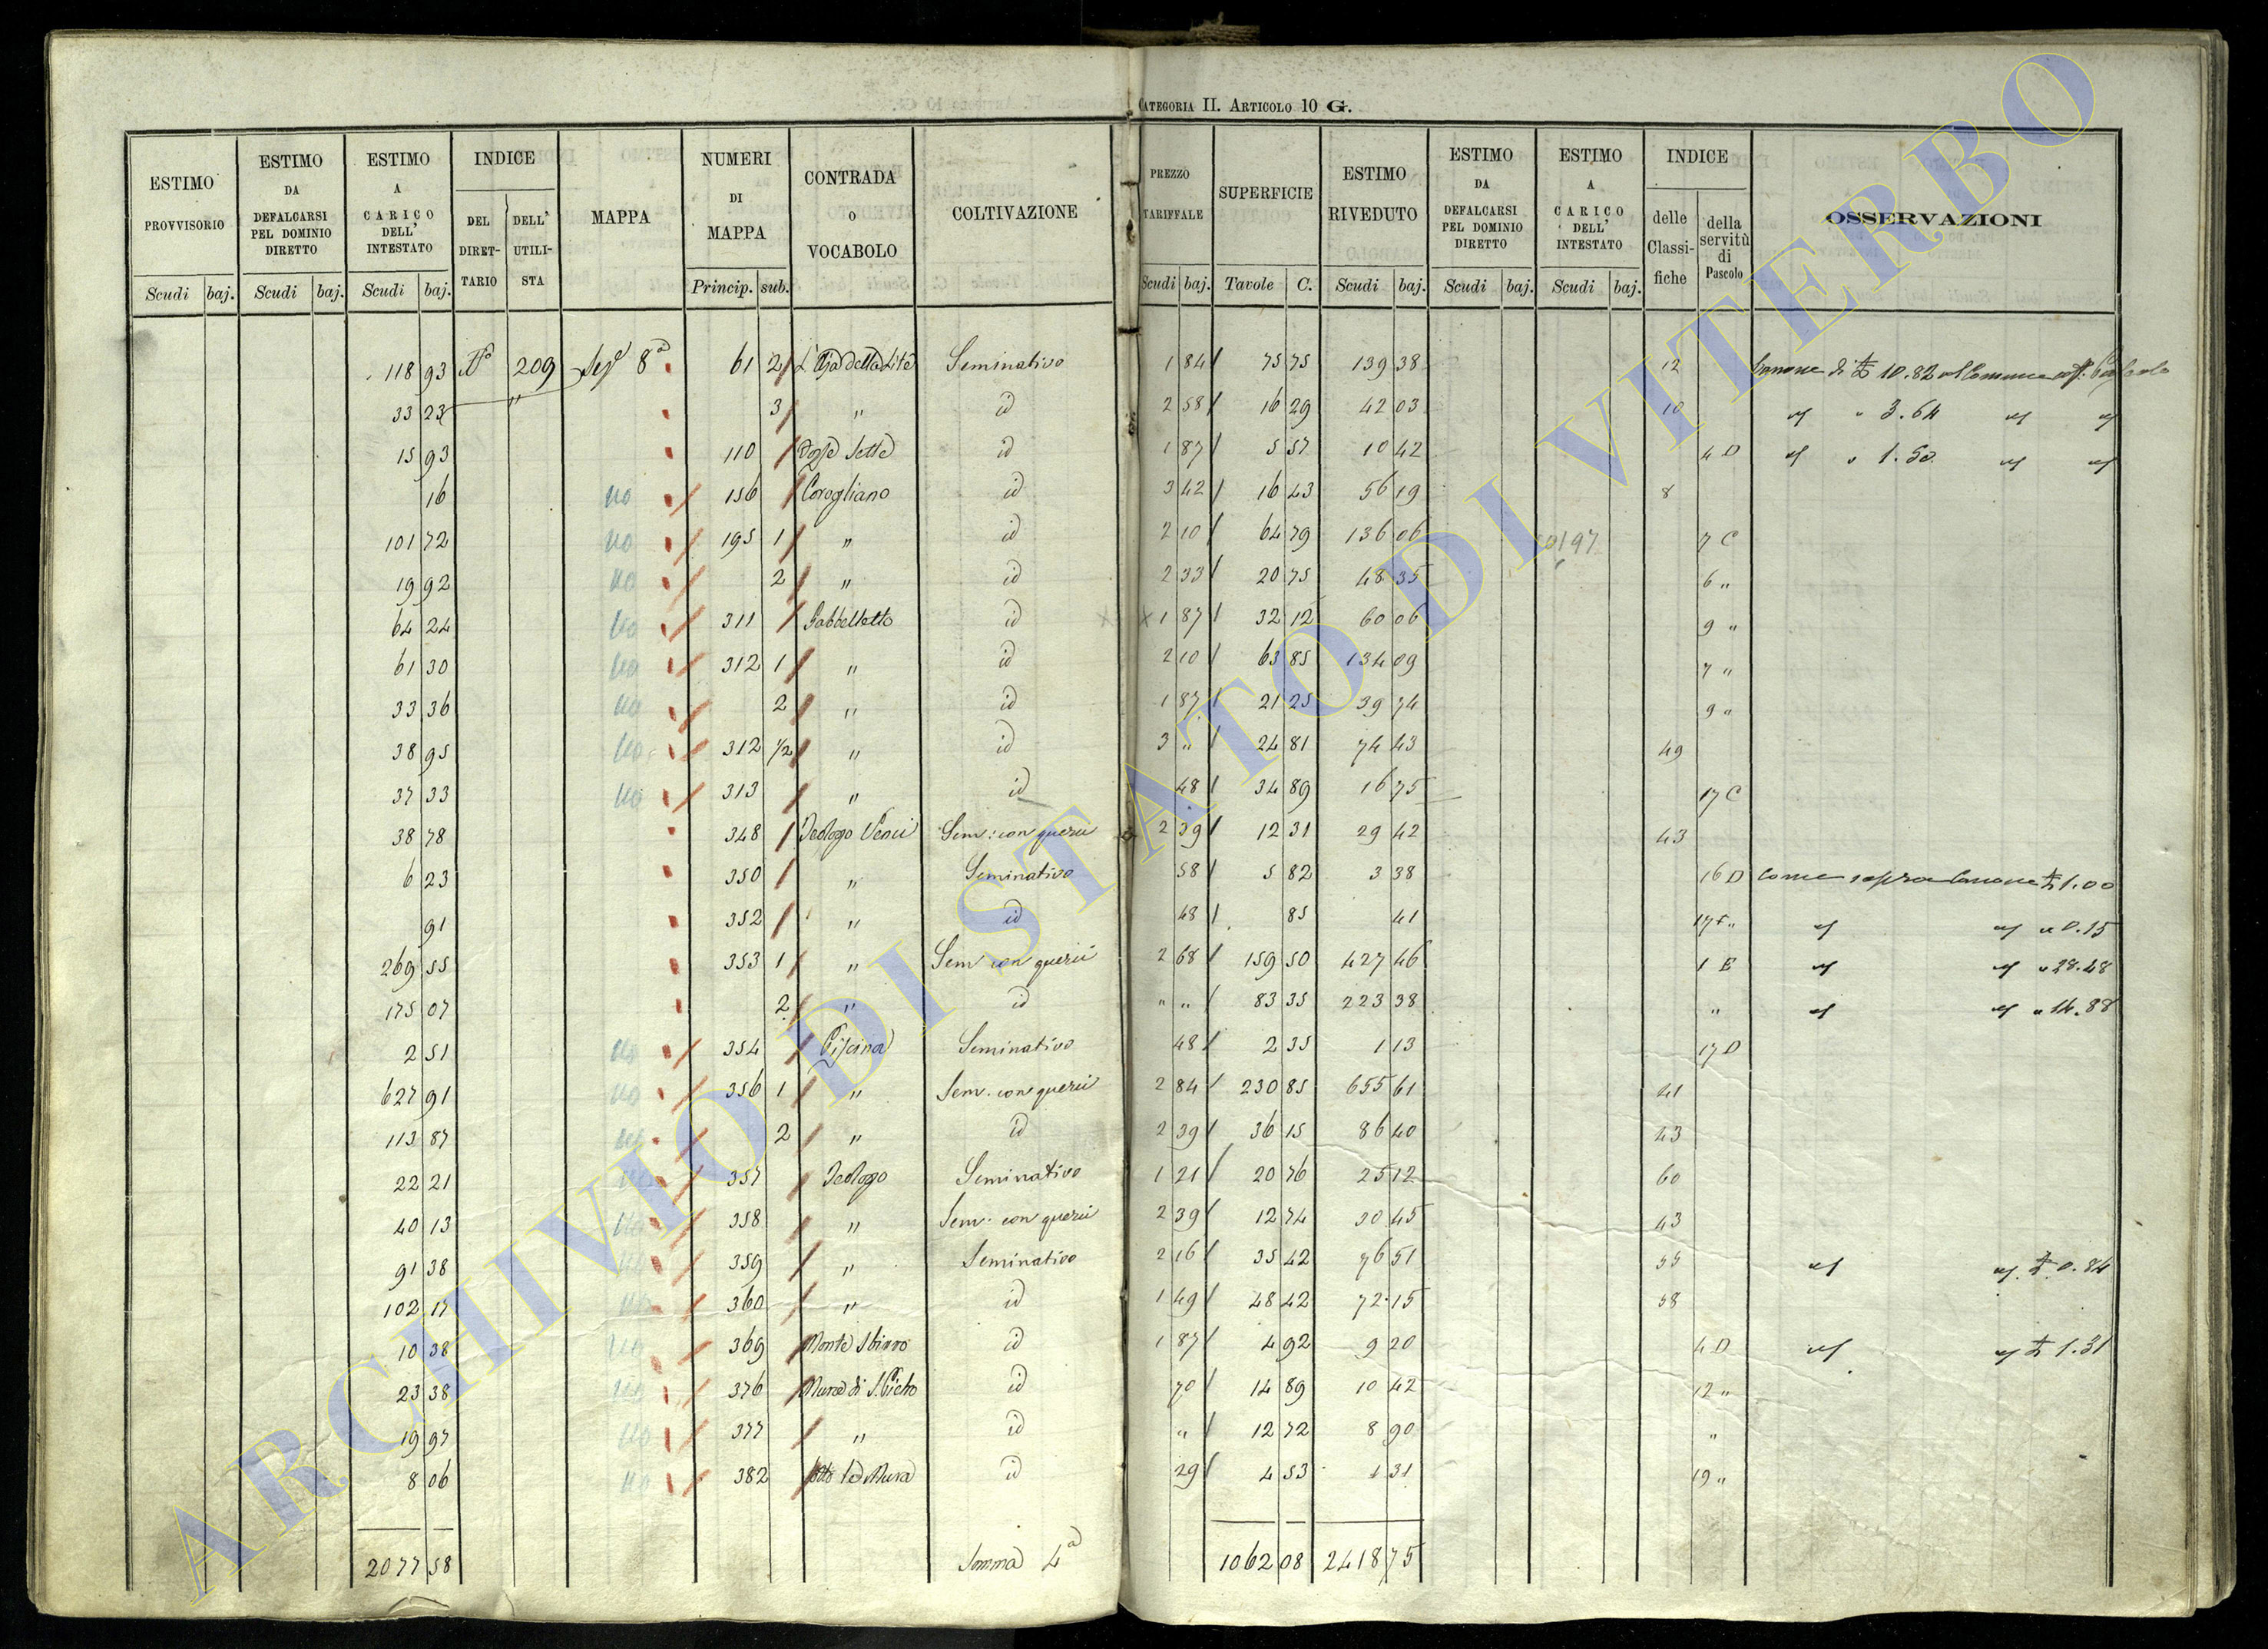 CATEGORIA II. ARTICOLO 10 G.
ESTIMO PROVVISORIO | ESTIMO DA DEFALCARSI PEL DOMINIO DIRETTO | ESTIMO A CARICO DELL' INTESTATO | INDICE DEL DIRETTARIO | DELL' UTILISTA | MAPPA | NUMERI DI MAPPA | CONTRADA O VOCABOLO | COLTIVAZIONE | PREZZO TARIFFALE | SUPERFICIE | ESTIMO RIVEDUTO | ESTIMO DA DEFALCARSI PEL DOMINIO DIRETTO | ESTIMO A CARICO DELL' INTESTATO | INDICE delle Classifiche | della servitù di Pascolo | OSSERVAZIONI
Scudi baj. Scudi baj. Scudi baj. Princip. sub. Scudi baj. Tavole C. Scudi baj. Scudi baj. Scudi baj.
118 93 209 8a 61 2 Seminativo 1 84 75 75 139 38 12 Canone di 10.82
33 23 " 3 " id 2 58 16 29 42 03 10 " 3.64
15 93 110 id 1 87 5 57 10 42 4 D " 1.50
16 no 156 Corogliano id 3 42 16 43 56 19 8
101 72 no 195 1 " id 2 10 64 79 136 06 7 C
19 92 no 2 " id 2 33 20 75 48 35 6 "
64 24 no 311 Gabbelletto id x 1 87 32 12 60 06 9 "
61 30 no 312 1 " id 2 10 63 85 134 09 7 "
33 36 no 2 " id 1 87 21 25 39 74 9 "
38 95 no 312 1/2 " id 3 " 24 81 74 43 49
37 33 no 313 " id 48 34 89 16 75 17 C
38 78 348 Sem: con querci 2 39 12 31 29 42 43
6 23 350 " Seminativo 58 5 82 3 38 16 D Come sopra Canone 1.00
91 352 " id 48 85 41 17 " 0.15
269 55 353 1 " Sem con querci 2 68 159 50 427 46 1 E " 28.48
175 07 2 " id " " 83 35 223 38 " " 14.88
2 51 no 354 Piscina Seminativo 48 2 35 1 13 17 D
627 91 no 356 1 " Sem. con querci 2 84 230 85 655 61 41
113 87 no 2 " id 2 39 36 15 86 40 43
22 21 no 357 Teologo Seminativo 1 21 20 76 25 12 60
40 13 no 358 " Sem: con querci 2 39 12 74 30 45 43
91 38 no 359 " Seminativo 2 16 35 42 76 51 55 0.84
102 17 no 360 " id 1 49 48 42 72 15 58
10 38 no 369 Monte Sbirro id 1 87 4 92 9 20 4 D 1.31
23 38 no 376 Mura di S. Pietro id 70 14 89 10 42 12 "
19 97 no 377 " id " 12 72 8 90 "
8 06 no 382 Sotto le Mura id 29 4 53 1 31 19 "
2077 58 Somma 4a 1062 08 2418 75
ARCHIVIO DI STATO DI VITERBO